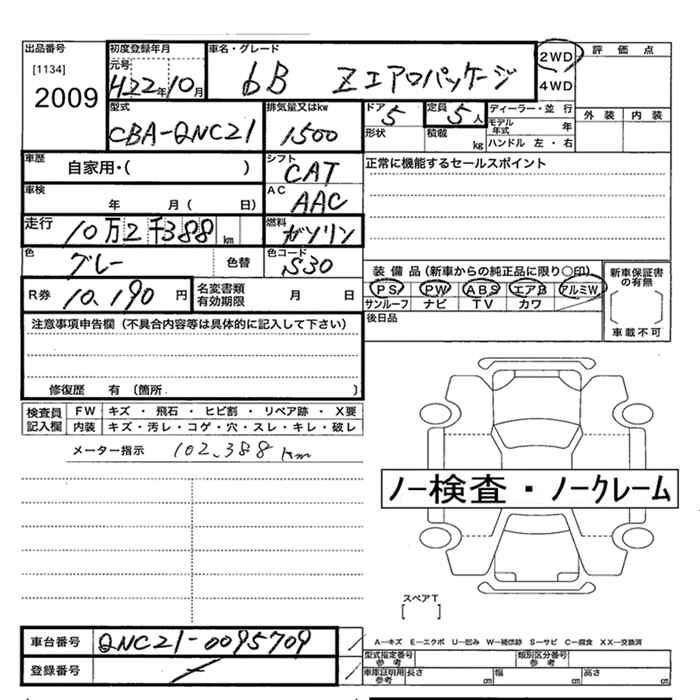 出品番号 初度登録年月 車名・グレード 2WD 評価点
[1134] 元号 4WD
2009 H22年10月 bB Zエアロパッケージ
型式 排気量又はkw ドア 定員 ディーラー・並行 外装 内装
CBA-QNC21 1500 5 5人 モデル年式 年
形状 積載 kg ハンドル 左・右
車歴 自家用・( ) シフト CAT 正常に機能するセールスポイント
車検 年 月 ( 日) AC AAC
走行 10万2千388km 燃料 ガソリン
色 グレー 色替 色コード S30
装備品(新車からの純正品に限り○印) 新車保証書の有無
R券 10,190円 名変書類有効期限 月 日 PS PW ABS エアB アルミW
サンルーフ ナビ TV カワ [ ]
注意事項申告欄(不具合内容等は具体的に記入して下さい) 後日品 車載不可
修復歴 有 (箇所 )
検査員記入欄 FW キズ・飛石・ヒビ割・リペア跡・X要
内装 キズ・汚レ・コゲ・穴・スレ・キレ・破レ
メーター指示 102,388 km
ノー検査・ノークレーム
スペアT
[ ]
車台番号 QNC21-0095709
A―キズ E―エクボ U―凹み W―補修跡 S―サビ C―腐食 XX―交換済
登録番号
型式指定番号 参考 類別区分番号 参考
車庫証明用 参考 長さ cm 幅 cm 高さ cm